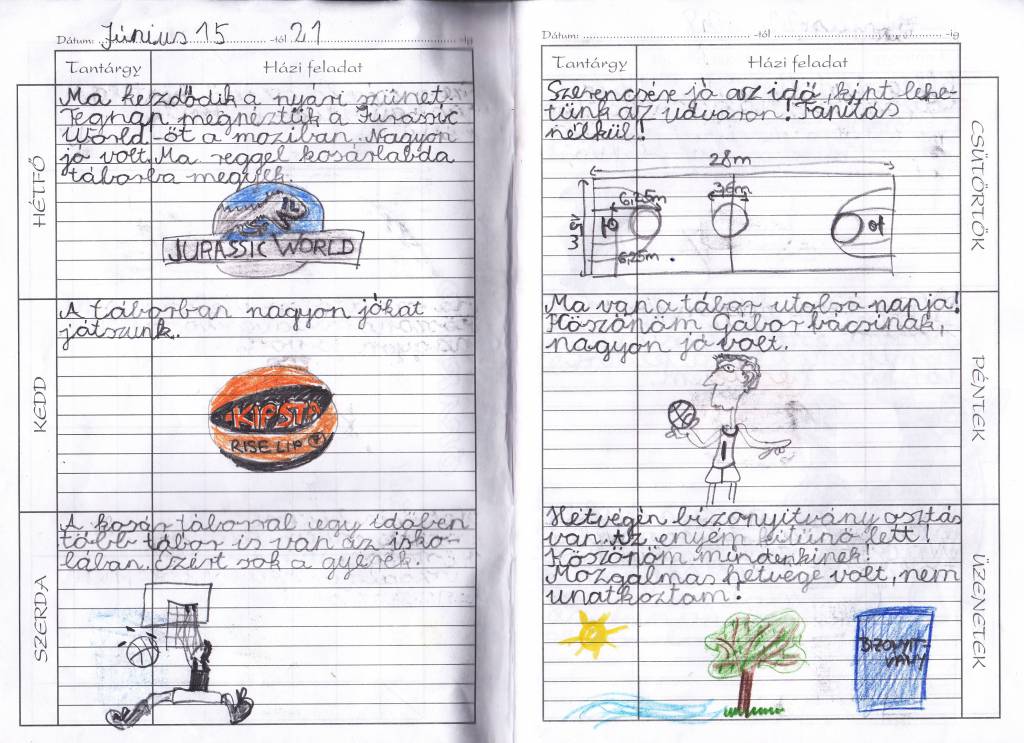 Dátum: Június 15 -tól 21 -ig
Tantárgy Házi feladat
HÉTFŐ
Ma kezdődik a nyári szünet.
Tegnap megnéztük a Jurassic
World-öt a moziban. Nagyon
jó volt. Ma reggel kosárlabda
táborba megyek.
JURASSIC WORLD
KEDD
A táborban nagyon jókat
játszunk.
KIPSTA
RISE LIP
SZERDA
A kosár táborral egy időben
több tábor is van az isko-
lában. Ezért sok a gyerek.
Dátum: -tól -ig
Tantárgy Házi feladat
CSÜTÖRTÖK
Szerencsére jó az idő, kint lehe-
tünk az udvaron! Tanítás
nélkül!
28m
6,25m
3,6m
6,25m
PÉNTEK
Ma van a tábor utolsó napja!
Köszönöm Gábor bácsinak,
nagyon jó volt.
ÜZENETEK
Hétvégén bizonyítvány osztás
van. Az enyém kitűnő lett!
Köszönöm mindenkinek!
Mozgalmas hétvége volt, nem
unatkoztam!
BIZONYÍT-
VÁNY